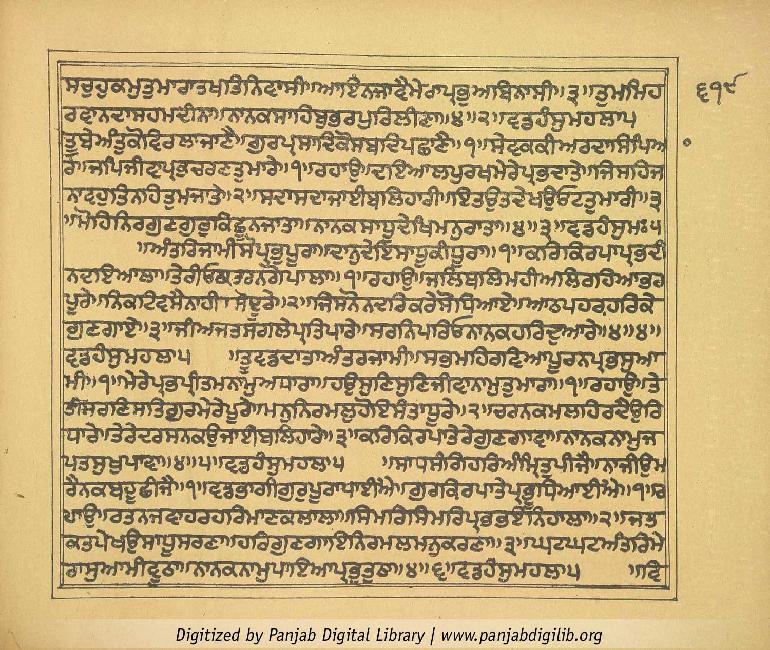 ੬੧੯
ਸਚੁਹੁਕਮੁਤੁਮਾਰਾਤਖਤਿਨਿਵਾਸੀ॥ਆਇਨਜਾਵੈਮੇਰਾਪ੍ਰਭੁਅਬਿਨਾਸੀ॥੩॥ਤੁਮਮਿਹ
ਰਵਾਨਦਾਸਹਮਦੀਨਾ॥ਨਾਨਕਸਾਹਿਬੁਭਰਪੁਰਿਲੀਣਾ॥੪॥੨॥ਵਡਹੰਸੁਮਹਲਾ੫
ਤੂਬੇਅੰਤੁਕੋਵਿਰਲਾਜਾਣੈ॥ਗੁਰਪ੍ਰਸਾਦਿਕੋਸਬਦਿਪਛਾਣੈ॥੧॥ਸੇਵਕਕੀਅਰਦਾਸਿਪਿਆ
ਰੇ॥ਜਪਿਜੀਵਾਪ੍ਰਭਚਰਣਤੁਮਾਰੇ॥੧॥ਰਹਾਉ॥ਦਇਆਲਪੁਰਖਮੇਰੇਪ੍ਰਭਦਾਤੇ॥ਜਿਸਹਿਜ
ਨਾਵਹੁਤਿਨਹਿਤੁਮਜਾਤੇ॥੨॥ਸਦਾਸਦਾਜਾਈਬਲਿਹਾਰੀ॥ਇਤਉਤਦੇਖਉਓਟਤੁਮਾਰੀ॥੩
॥ਮੋਹਿਨਿਰਗੁਣਗੁਣੁਕਿਛੂਨਜਾਤਾ॥ਨਾਨਕਸਾਧੂਦੇਖਿਮਨੁਰਾਤਾ॥੪॥੩॥ਵਡਹੰਸੁਮਃ੫
॥ਅੰਤਰਿਜਾਮੀਸੋਪ੍ਰਭੁਪੂਰਾ॥ਦਾਨੁਦੇਇਸਾਧੂਕੀਧੂਰਾ॥੧॥ਕਰਿਕਿਰਪਾਪ੍ਰਭਦੀ
ਨਦਇਆਲਾ॥ਤੇਰੀਓਟਪੂਰਨਗੋਪਾਲਾ॥੧॥ਰਹਾਉ॥ਜਲਿਥਲਿਮਹੀਅਲਿਰਹਿਆਭਰ
ਪੂਰੇ॥ਨਿਕਟਿਵਸੈਨਾਹੀਪ੍ਰਭੁਦੂਰੇ॥੨॥ਜਿਸਨੋਨਦਰਿਕਰੇਸੋਧਿਆਏ॥ਆਠਪਹਰਹਰਿਕੇ
ਗੁਣਗਾਏ॥੩॥ਜੀਅਜੰਤਸਗਲੇਪ੍ਰਤਿਪਾਰੇ॥ਸਰਨਿਪਰਿਓਨਾਨਕਹਰਿਦੁਆਰੇ॥੪॥੪॥
ਵਡਹੰਸੁਮਹਲਾ੫ ॥ਤੂਵਡਦਾਤਾਅੰਤਰਜਾਮੀ॥ਸਭਮਹਿਰਵਿਆਪੂਰਨਪ੍ਰਭਸੁਆ
ਮੀ॥੧॥ਮੇਰੇਪ੍ਰਭਪ੍ਰੀਤਮਨਾਮੁਅਧਾਰਾ॥ਹਉਸੁਣਿਸੁਣਿਜੀਵਾਨਾਮੁਤੁਮਾਰਾ॥੧॥ਰਹਾਉ॥ਤੇ
ਰੀਸਰਣਿਸਤਿਗੁਰਮੇਰੇਪੂਰੇ॥ਮਨੁਨਿਰਮਲੁਹੋਇਸੰਤਾਧੂਰੇ॥੨॥ਚਰਨਕਮਲਹਿਰਦੈਉਰਿ
ਧਾਰੇ॥ਤੇਰੇਦਰਸਨਕਉਜਾਈਬਲਿਹਾਰੇ॥੩॥ਕਰਿਕਿਰਪਾਤੇਰੇਗੁਣਗਾਵਾ॥ਨਾਨਕਨਾਮੁਜ
ਪਤਸੁਖੁਪਾਵਾ॥੪॥੫॥ਵਡਹੰਸੁਮਹਲਾ੫ ॥ਸਾਧਸੰਗਿਹਰਿਅੰਮ੍ਰਿਤੁਪੀਜੈ॥ਨਾਜੀਉਮ
ਰੈਨਕਬਹੂਛੀਜੈ॥੧॥ਵਡਭਾਗੀਗੁਰੁਪੂਰਾਪਾਈਐ॥ਗੁਰਕਿਰਪਾਤੇਪ੍ਰਭੂਧਿਆਈਐ॥੧॥ਰ
ਹਾਉ॥ਰਤਨਜਵਾਹਰਹਰਿਮਾਣਕਲਾਲਾ॥ਸਿਮਰਿਸਿਮਰਿਪ੍ਰਭਭਏਨਿਹਾਲਾ॥੨॥ਜਤ
ਕਤਪੇਖਉਸਾਧੂਸਰਣਾ॥ਹਰਿਗੁਣਗਾਇਨਿਰਮਲਮਨੁਕਰਣਾ॥੩॥ਘਟਘਟਅੰਤਰਿਮੇ
ਰਾਸੁਆਮੀਵੂਠਾ॥ਨਾਨਕਨਾਮੁਪਾਇਆਪ੍ਰਭੁਤੂਠਾ॥੪॥੬॥ਵਡਹੰਸੁਮਹਲਾ੫ ॥ਵਿ
Digitized by Panjab Digital Library | www.panjabdigilib.org